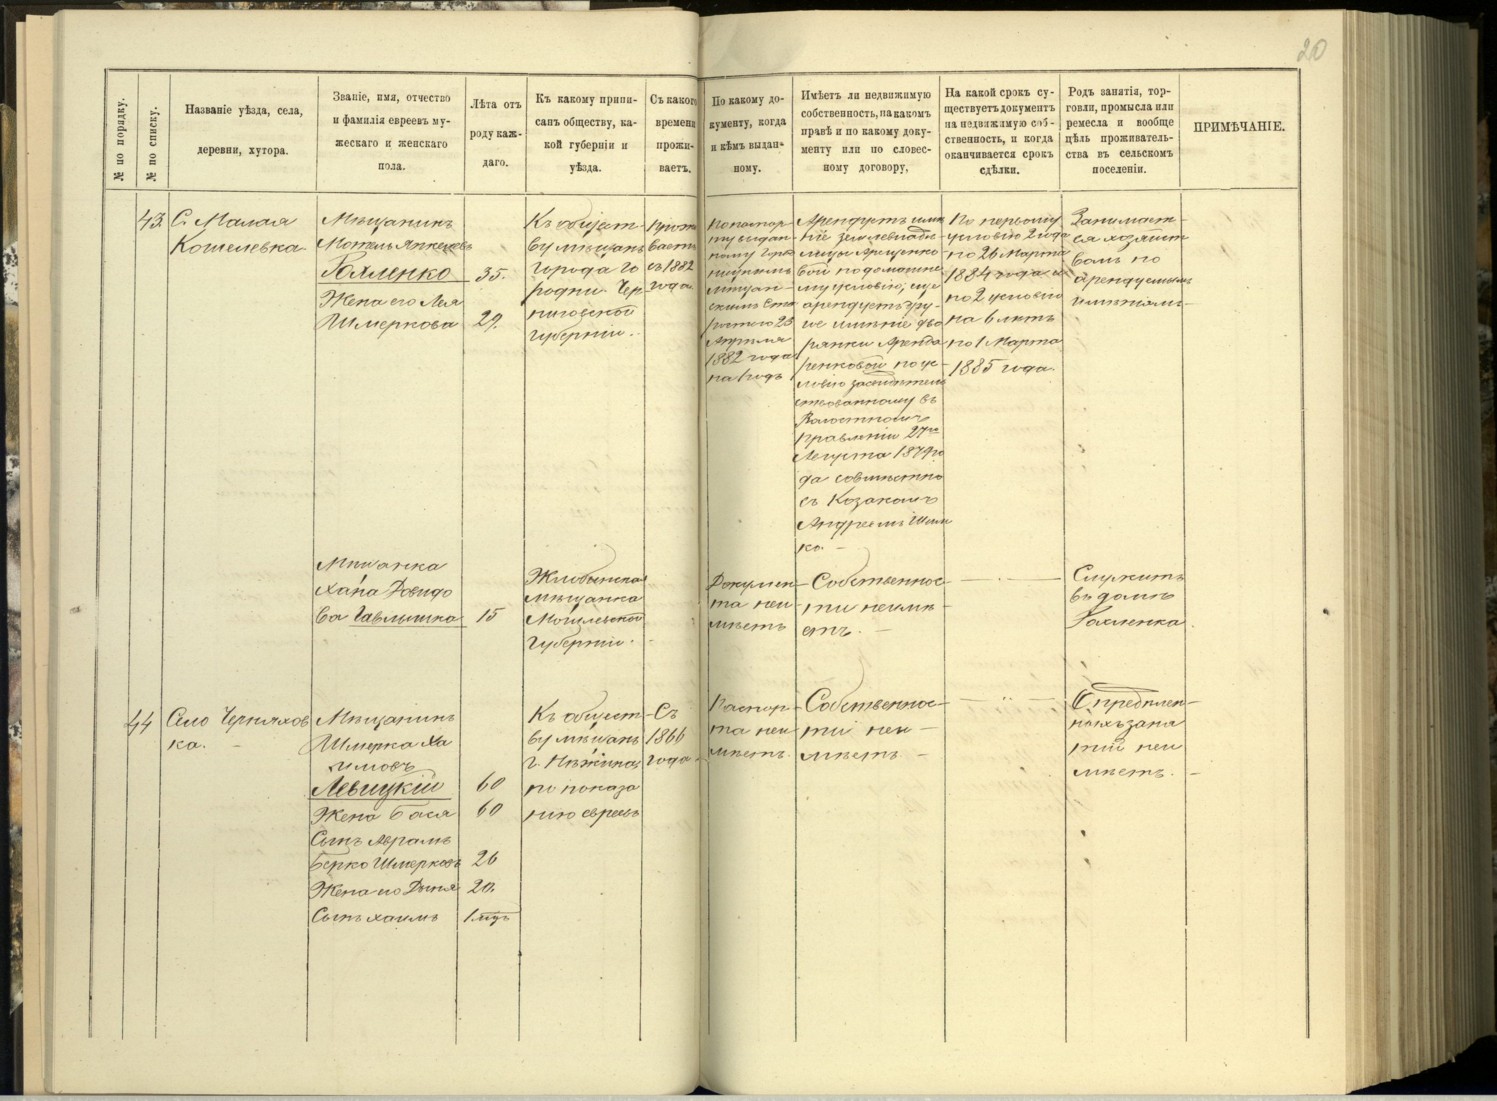 20
№ по порядку.
№ по списку.
Названіе уѣзда, села,
деревни, хутора.
Званіе, имя, отчество
и фамилія евреевъ му-
жескаго и женскаго
пола.
Лѣта отъ
роду каж-
даго.
Къ какому припи-
санъ обществу, ка-
кой губерніи и
уѣзда.
Съ какого
времени
прожи-
ваетъ.
По какому до-
кументу, когда
и кѣмъ выдан-
ному.
Имѣетъ ли недвижимую
собственность, на какомъ
правѣ и по какому доку-
менту или по словес-
ному договору.
На какой срокъ су-
ществуетъ документъ
на недвижимую соб-
ственность, и когда
оканчивается срокъ
сдѣлки.
Родъ занятія, тор-
говли, промысла или
ремесла и вообще
цѣль проживатель-
ства въ сельскомъ
поселеніи.
ПРИМѢЧАНІЕ.
43.
С. Малая
Кошелевка
Мѣщанинъ
Мотель
Рохленко
35.
Жена его Лея
Шмеркова
29.
Къ общест-
ву мѣщанъ
города Го
родни Чер
ниговской
губерніи.
Прожи
ваетъ
съ 1882
года.
По паспор-
ту выдан-
ному Горо
ницкимъ
мѣщан-
скимъ Ста
ростою 23
Апрѣля
1882 года
на 1 годъ
Арендуетъ имѣ
ніе землевладѣ-
лицы
вой по домашне
му условію, еще
арендуетъ дру-
ое имѣніе дво
рянки
ренковой по ус-
ловію засвидѣтель
ствованному въ
Волостномъ
Правленіи 27го
Августа 1879 го
да совмѣстно
съ Козакомъ
Андреемъ
ко. -
По первому
условію 2 года
по 26 Марта
1884 года и
по 2 условію
на 6 лѣтъ
по 1 Марта
1885 года.
Занимает-
ся хозяйст
вомъ по
арендуемымъ
имѣніямъ-
Мѣщанка
Хана Довидо
ва Гавлышка
15
Жлобинская
мѣщанка
Могилевской
губерніи.
Докумен-
та неи
мѣетъ
Собственнос-
ти неимѣ-
етъ. -
Служитъ
въ домѣ
Рохленка.
44
Село Черняхов
ка. -
Мѣщанинъ
Шмерка Ха
имовъ
Левицкій
60
Жена Бася
60
Сынъ Аврамъ
Берко Шмерковъ
26
Жена его Дыня
20.
Сынъ Хаимъ
1 годъ
Къ общест-
ву мѣщанъ
г. Нѣжина
по показа
нію евреевъ
Съ
1866
года.
Паспор-
та неи
мѣетъ.
Собственнос-
ти неи-
мѣетъ. -
Опредѣлен-
ныхъ заня
тій неи
мѣетъ. -